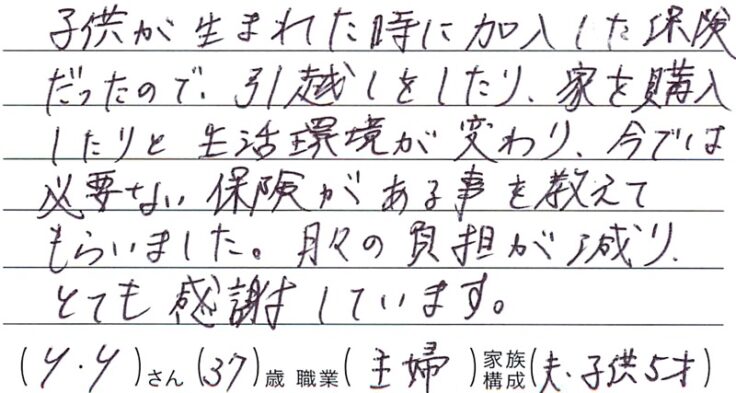 子供が生まれた時に加入した保険
だったので、引越しをしたり、家を購入
したりと生活環境が変わり、今では
必要ない保険がある事を教えて
もらいました。月々の負担が減り、
とても感謝しています。
(Y.Y)さん(37)歳 職業(主婦)家族構成(夫・子供5才)